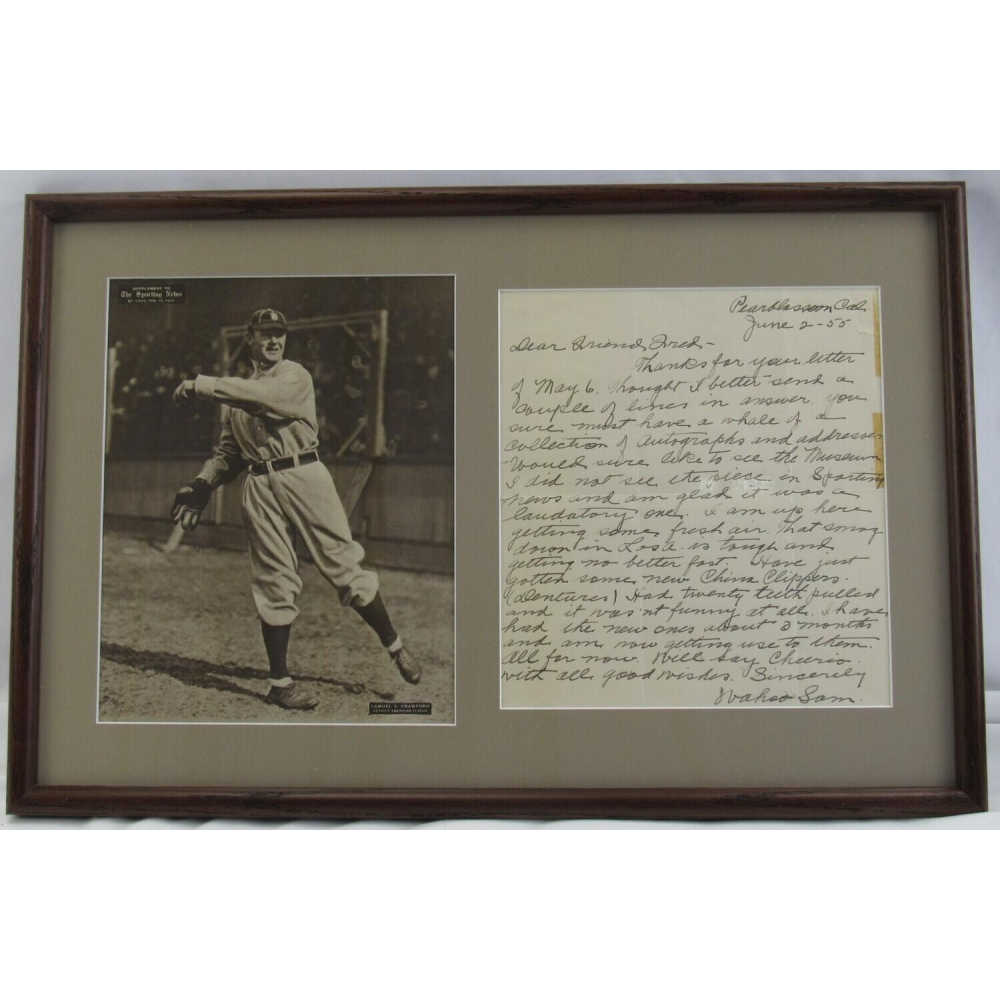 SUPPLEMENT TO
The Sporting News
SAMUEL S. CRAWFORD
DETROIT AMERICAN LEAGUE
Pearblossom Cal.
June 2-55
Dear Friend Fred-
Thanks for your letter
of May 6. Thought I better send a
couple of lines in answer you
sure must have a whale of a
collection of autographs and addresses
Would sure like to see the Museum
I did not see the piece in Sporting
news and am glad it was a
laudatory one. I am up here
getting some fresh air. That smog
down in Los A. is tough and
getting no better fast. Have just
gotten some new China Clippers.
(Dentures) Had twenty teeth pulled
and it was'nt funny at all. I have
had the new ones about 3 months
and am now getting use to them.
All for now Will say Cheerio.
with all good wishes. Sincerily
Wahoo Sam.